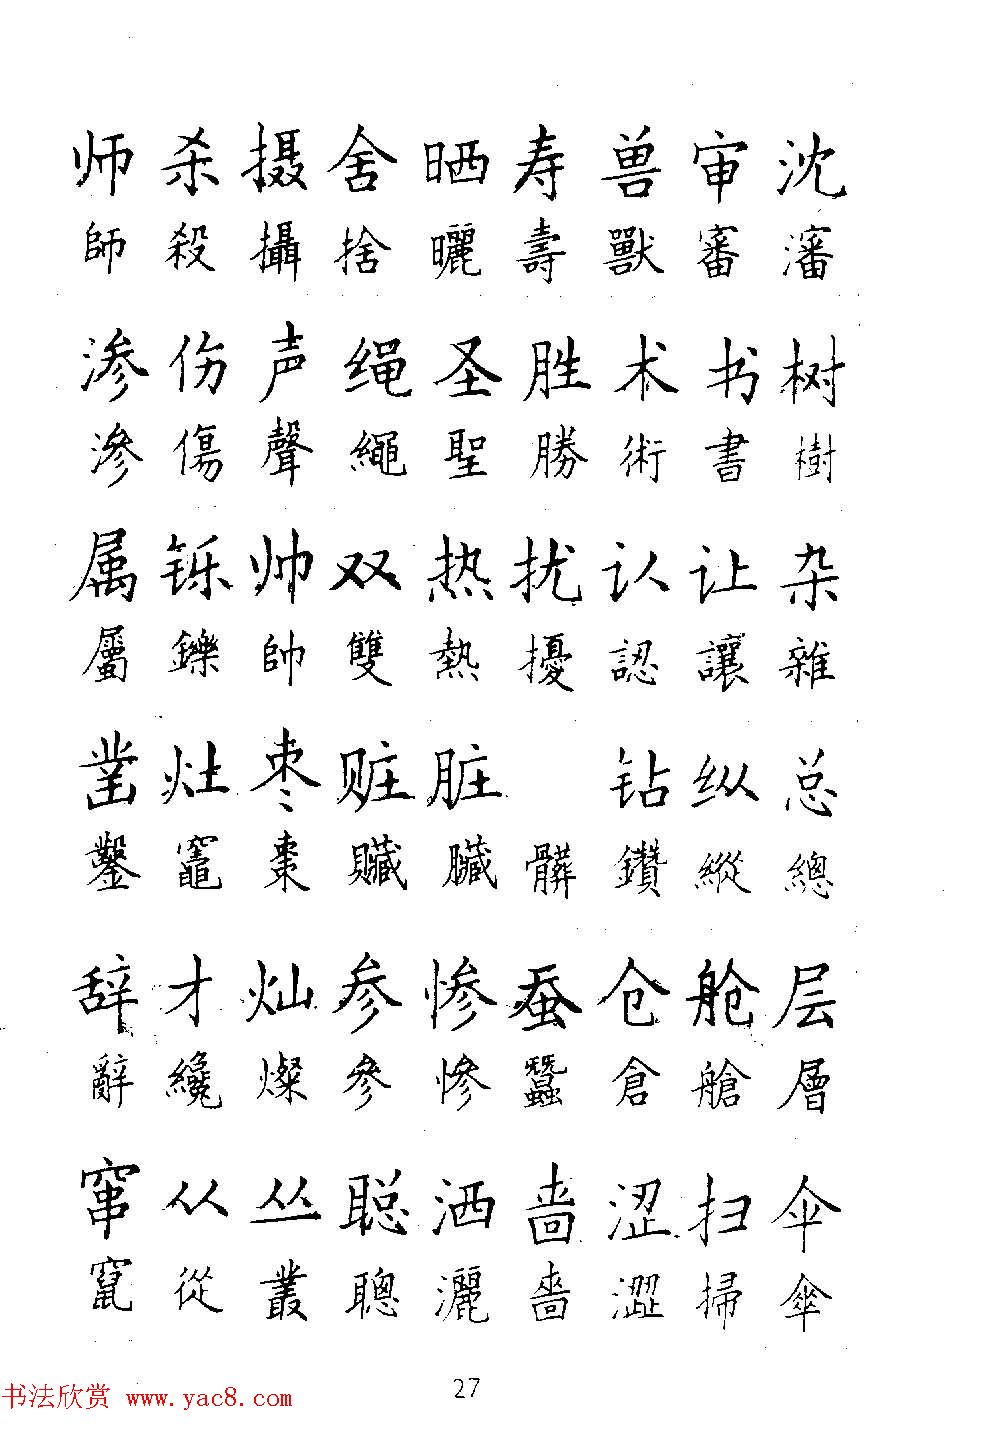 师杀摄舍晒寿兽审沈
師殺攝捨曬壽獸審瀋
渗伤声绳圣胜术书树
滲傷聲繩聖勝術書樹
属铄帅双热扰认让杂
屬鑠帥雙熱擾認讓雜
凿灶枣赃脏 钻纵总
鑿竈棗贜臟髒鑽縱總
辞才灿参惨蚕仓舱层
辭纔燦參慘蠶倉艙層
窜从丛聪洒啬涩扫伞
竄從叢聰灑嗇澀掃傘
27
书法欣赏 www.yac8.com